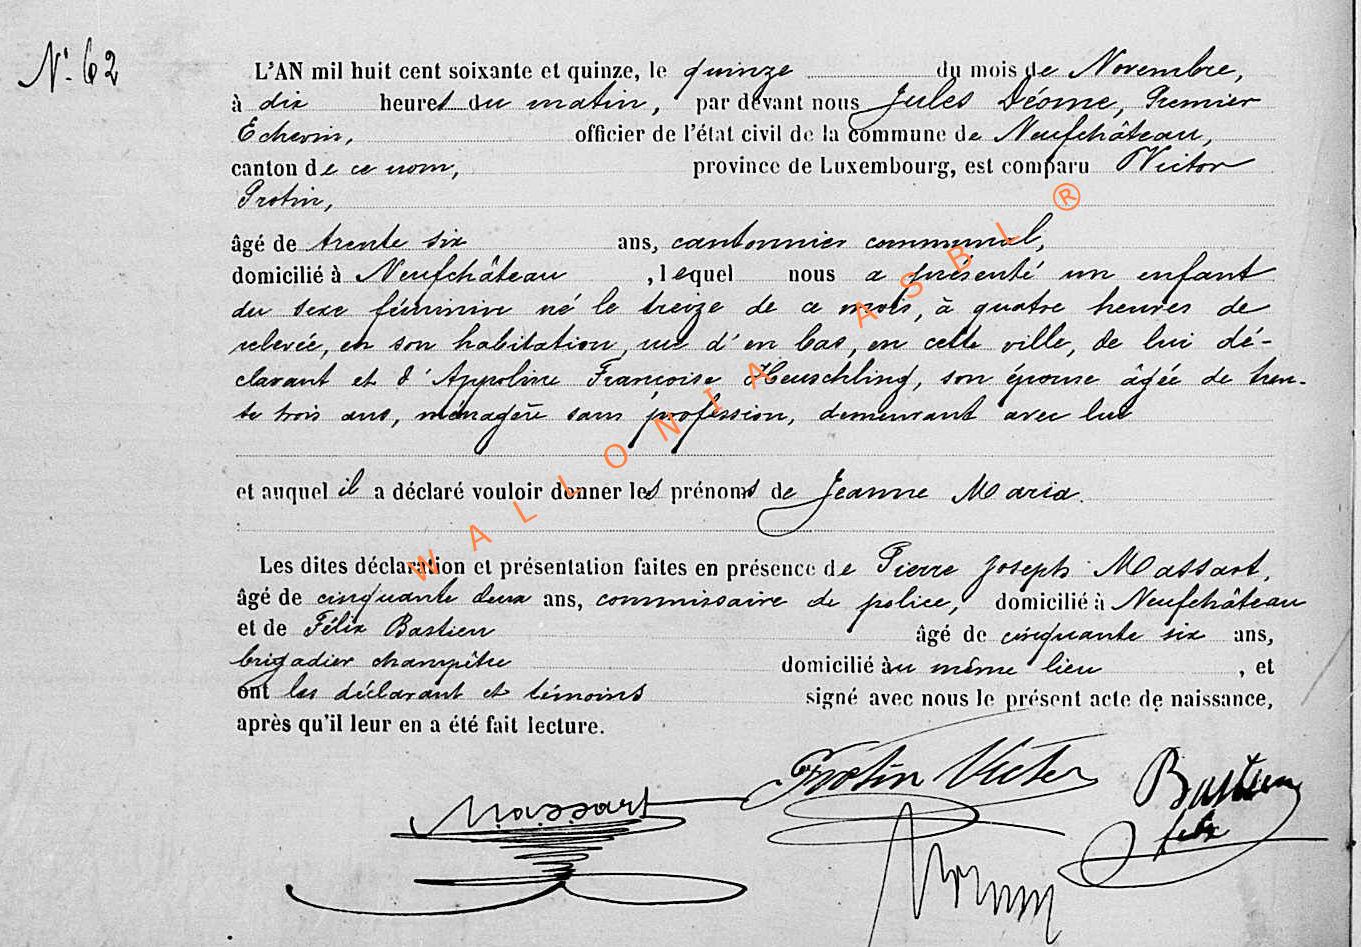 N° 62
L'AN mil huit cent soixante et quinze, le quinze du mois de Novembre,
à dix heures du matin, par devant nous Jules Déome, Premier
Echevin, officier de l'état civil de la commune de Neufchâteau,
canton de ce nom, province de Luxembourg, est comparu Victor
Protin,
âgé de trente six ans, cantonnier communal,
domicilié à Neufchâteau, lequel nous a présenté un enfant
du sexe féminin né le treize de ce mois, à quatre heures de
relevée, en son habitation, rue d'en bas, en cette ville, de lui dé-
clarant et d'Appoline Françoise Heuschling, son épouse âgée de tren-
te trois ans, ménagère sans profession, demeurant avec lui
et auquel il a déclaré vouloir donner les prénoms de Jeanne Maria.
Les dites déclaration et présentation faites en présence de Pierre Joseph Massart,
âgé de cinquante deux ans, commissaire de police, domicilié à Neufchâteau
et de Félix Bastien âgé de cinquante six ans,
brigadier champêtre domicilié au même lieu, et
ont les déclarant et témoins signé avec nous le présent acte de naissance,
après qu'il leur en a été fait lecture.
Protin Victor
Massart
Bastien
felix
WALLONIA ASBL ®